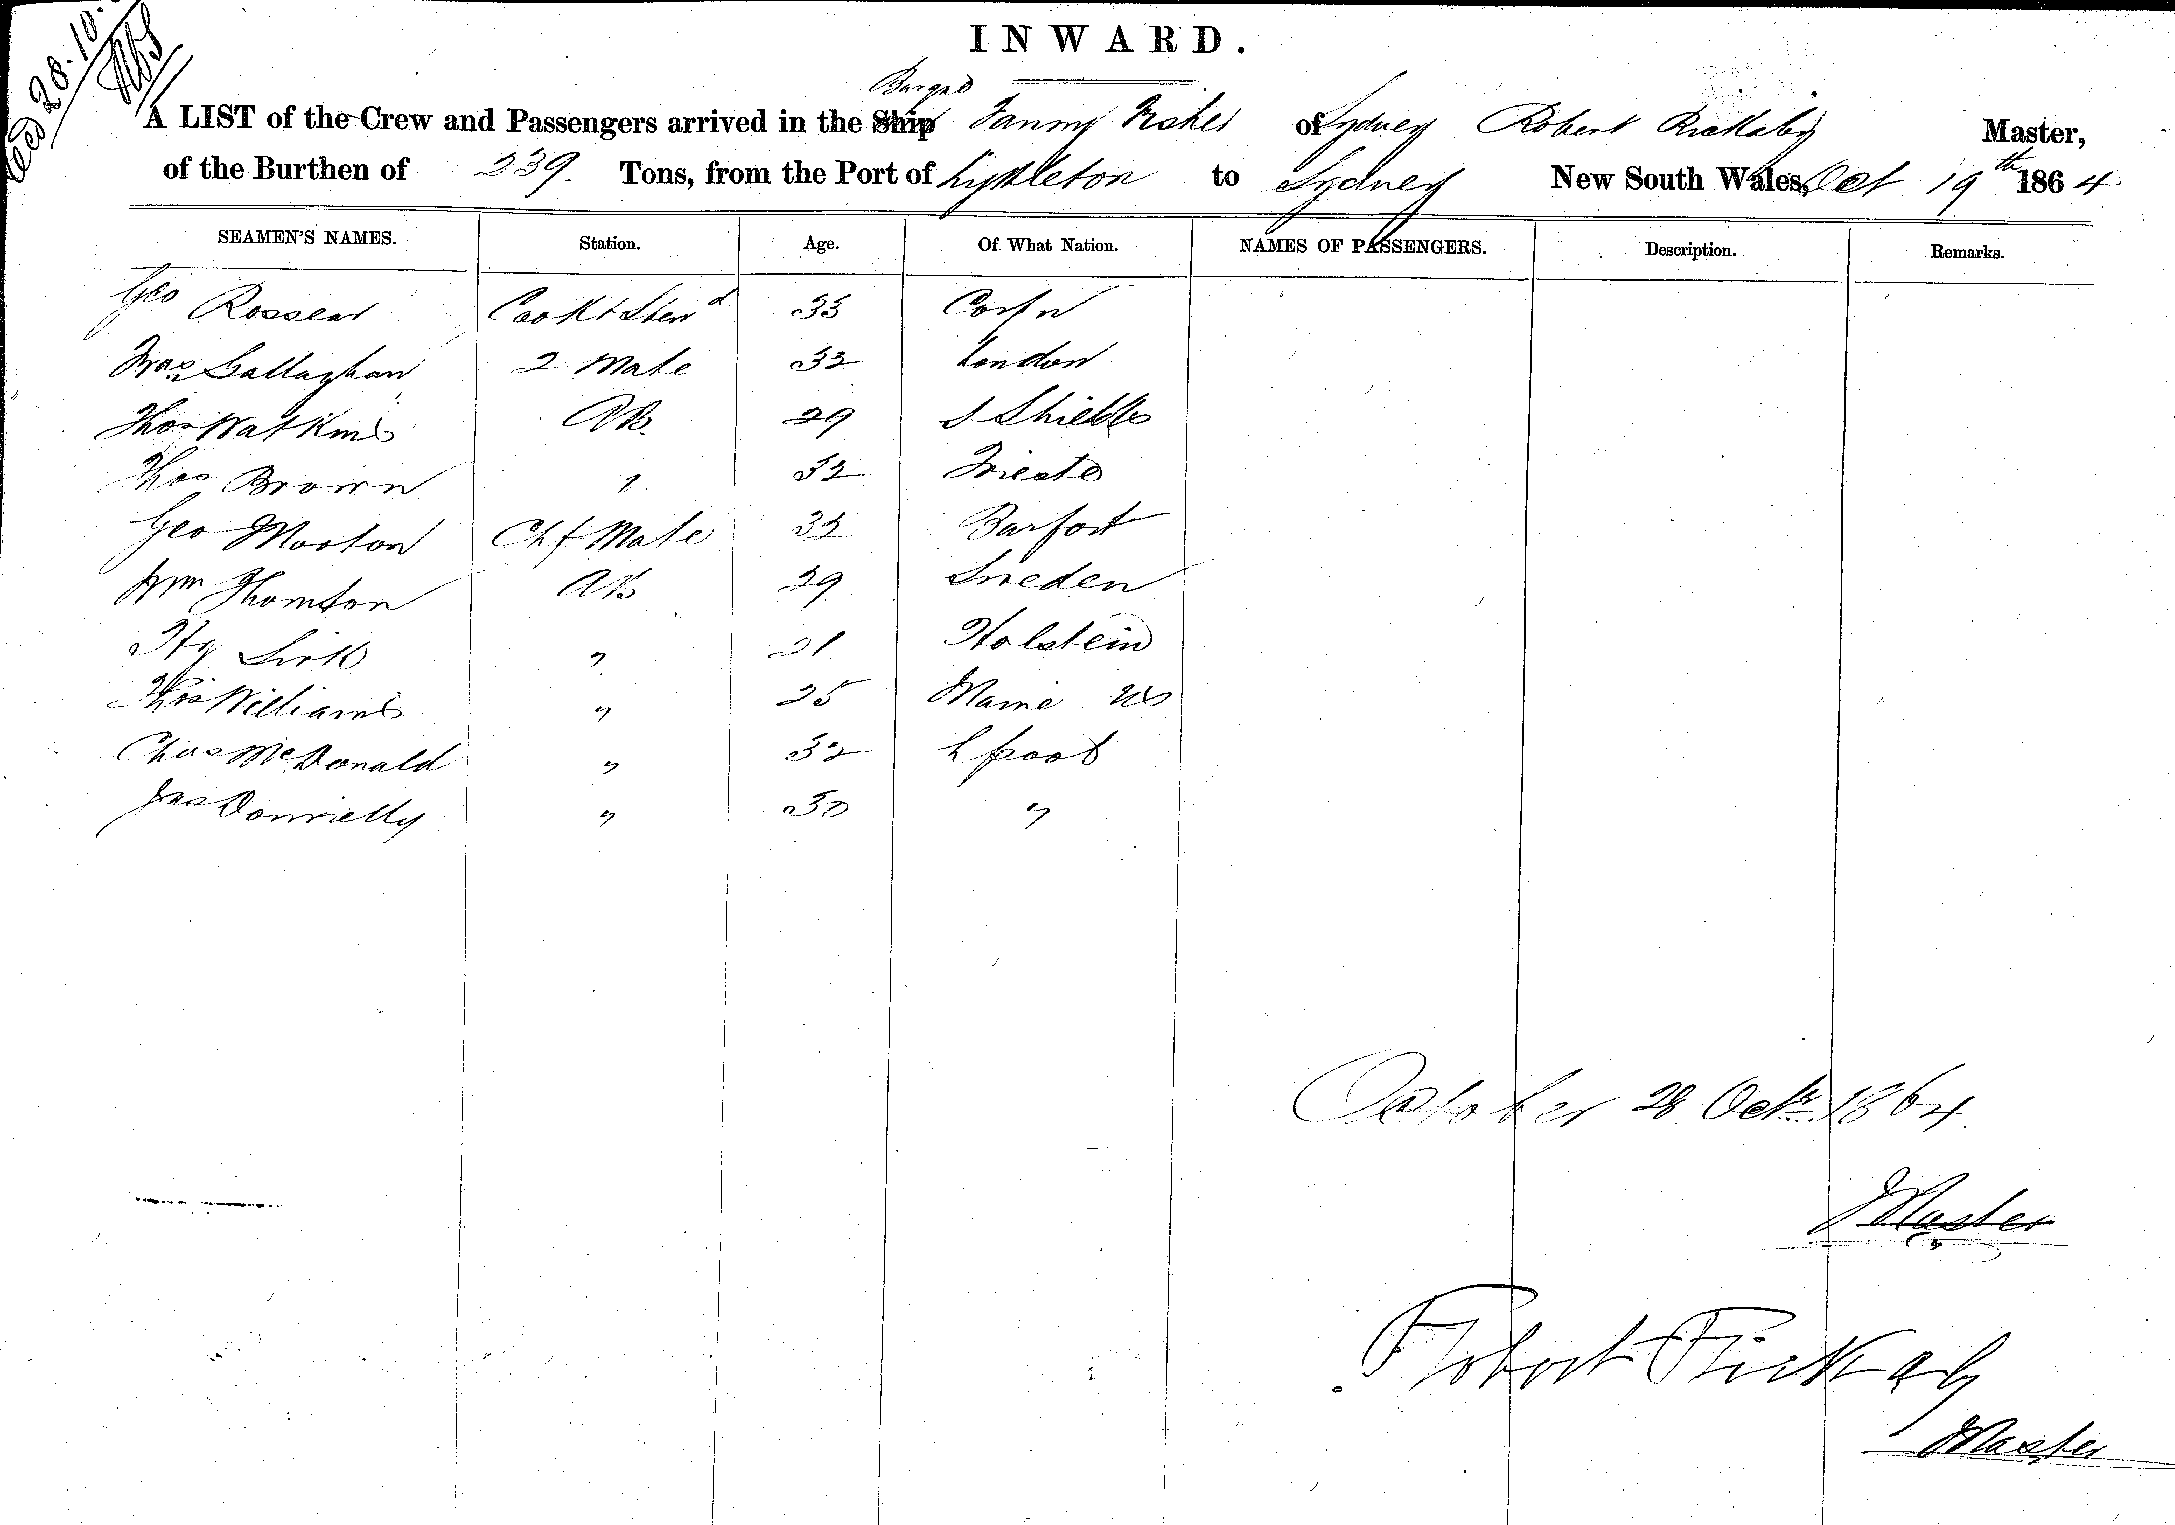 Recd 28.10.
INWARD.
Barque
A LIST of the Crew and Passengers arrived in the Ship Fanny Fisher of Sydney Robert Rickaby Master,
of the Burthen of 239. Tons, from the Port of Lyttleton to Sydney New South Wales, Oct 19th 1864.
SEAMEN'S NAMES. Station. Age. Of What Nation. NAMES OF PASSENGERS. Description. Remarks.
Geo Cook & Stewd 33 Corfu
Fras Callaghan 2 Mate 32 London
Thos Watkins AB. 29 S Shields
Thos Brown " 32 Trieste
Geo Morton Chf Mate 35
Wm Thomson AB 29 Sweden
Hy " 21 Holstein
Thos Williams " 25 Maine US
Chas McDonald " 32 Lpool
Jas Donnelly " 30 "
October 28 Octr. 1864.
Master
Robert Rickaby
Master